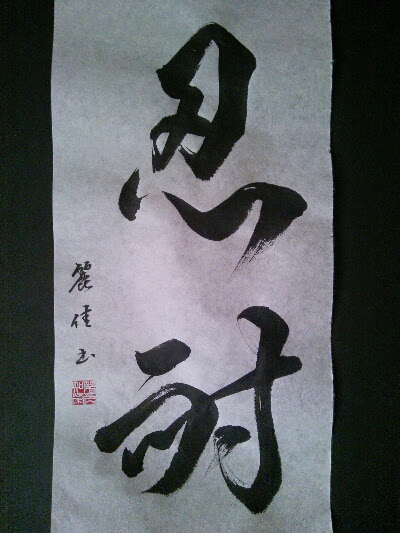 忍耐
麗佳书